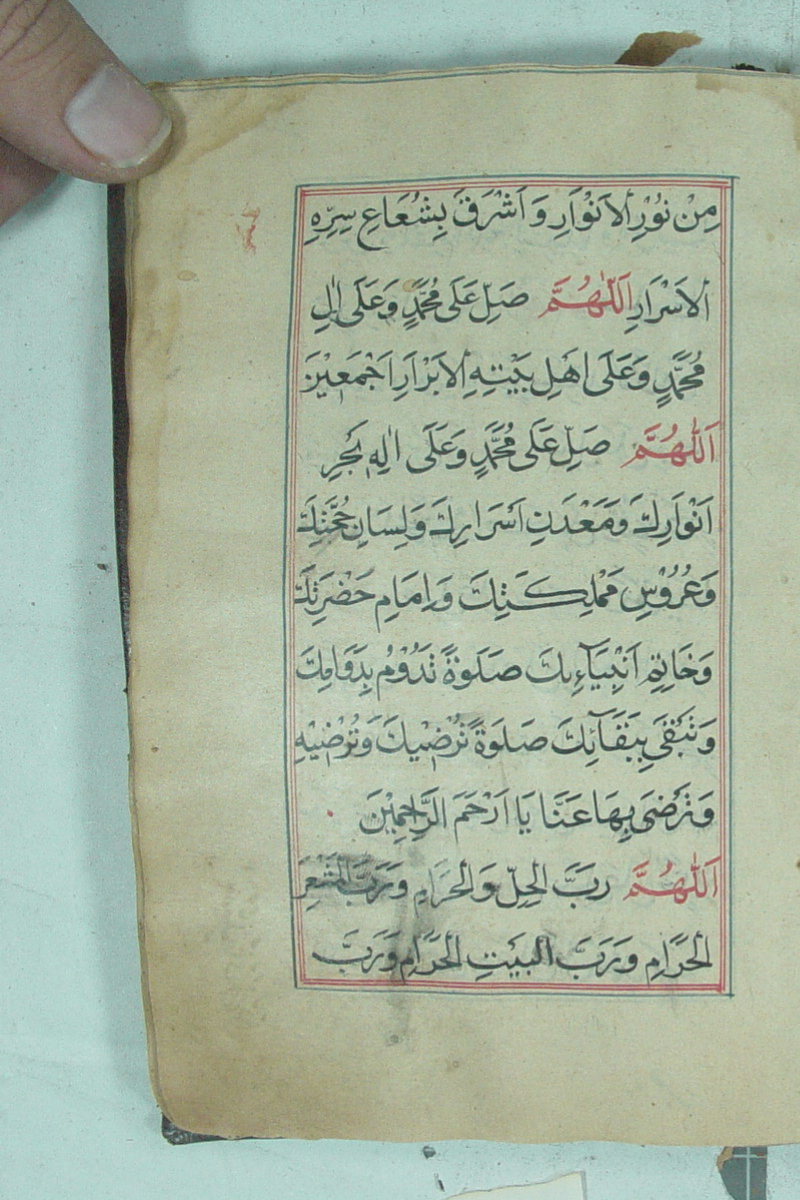 مِنْ نُوْرِ الاَنْوَارِ وَ اَشْرَقَ بِشُعَاعِ سِرِّهِ
الاَسْرَارِ اَللّٰهُمَّ صَلِّ عَلَى مُحَمَّدٍ وَعَلَى اٰلِ
مُحَمَّدٍ وَعَلَى اَهْلِ بَيْتِهِ الاَبْرَارِ اَجْمَعِيْنَ
اَللّٰهُمَّ صَلِّ عَلَى مُحَمَّدٍ وَعَلَى اٰلِهٖ بَحْرِ
اَنْوَارِكَ وَمَعْدَنِ اَسْرَارِكَ وَلِسَانِ حُجَّتِكَ
وَعُرُوْسِ مَمْلِكَتِكَ وَاِمَامِ حَضْرَتِكَ
وَخَاتِمِ اَنْبِيَآءِكَ صَلَوٰةً تَدُوْمُ بِدَوَامِكَ
وَتَبْقَى بِبَقَآئِكَ صَلَوةً تُرْضِيْكَ وَتُرْضِيْهِ
وَتَرْضَى بِهَا عَنَّا يَا اَرْحَمَ الرَّاحِمِيْنَ
اَللّٰهُمَّ رَبَّ الْحِلِّ وَالْحَرَامِ وَرَبَّ الْمَشْعَرِ
الْحَرَامِ وَرَبَّ الْبَيْتِ الْحَرَامِ وَرَبَّ